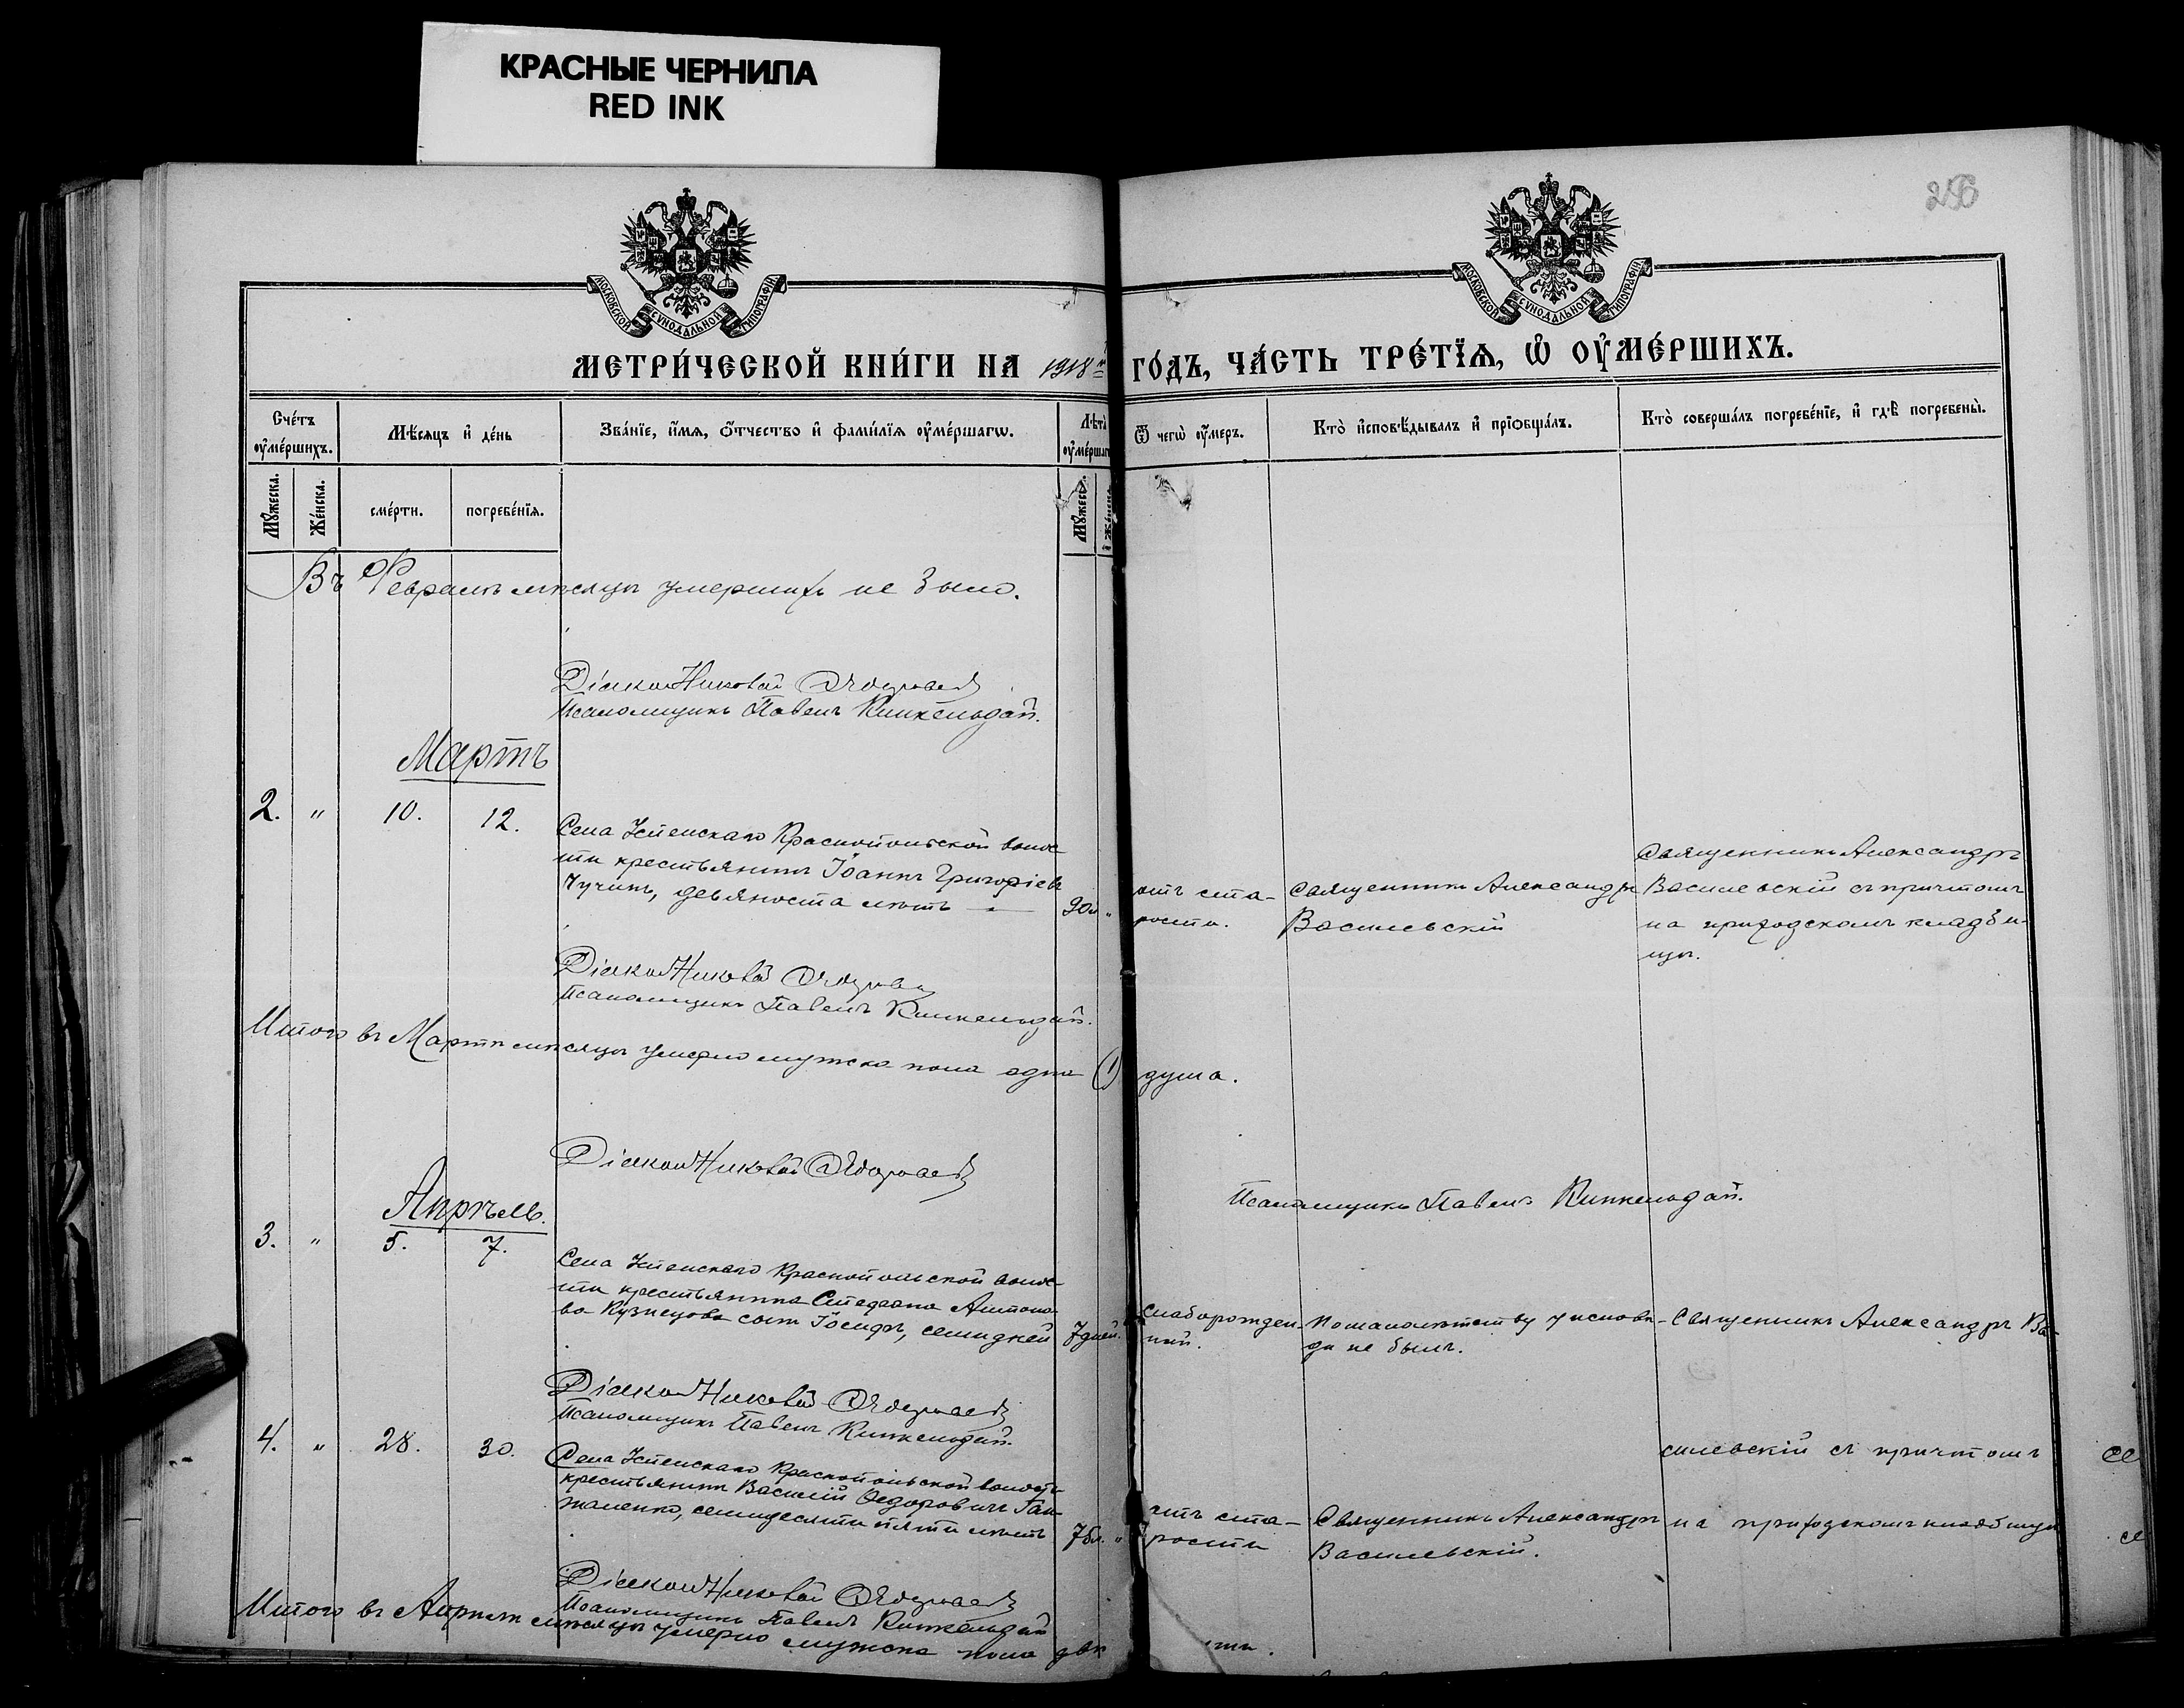 КРАСНЫЕ ЧЕРНИЛА
RED INK
256
МОСКОВСКОЙ СѴНОДАЛЬНОЙ ТИПОГРАФІИ
МОСКОВСКОЙ СѴНОДАЛЬНОЙ ТИПОГРАФІИ
МЕТРИ́ЧЕСКОЙ КНИ́ГИ НА 1918 ГО́ДЪ, ЧА́СТЬ ТРЕ́ТЇѦ, Ѡ҆ ОУ҆МЕ́РШИХЪ.
Сче́тъ
оу҆ме́ршихъ.
Мѣ́сяцъ и҆ де́нь
Зва́нїе, и҆́мѧ, ѻ҆́тчество и҆ фами́лїѧ оу҆ме́ршагѡ.
Лѣта̀
оу҆ме́ршаг
Ѿ чегѡ̀ оу҆́меръ.
Кто̀ и҆сповѣ́дывалъ и҆ прїѻбща́лъ.
Кто̀ соверша́лъ погребе́нїе, и҆ гдѣ̀ погребены̀.
Мꙋ́жеска.
Же́нска.
сме́рти.
погребе́нїѧ.
Мꙋ́жеск.
Же́нска
Въ Февралѣ мѣсяцѣ умершихъ не было.
Діаконъ Николай
Псаломщикъ Павелъ Кинкельдай.
Мартъ
2. " 10. 12.
Села Успенскаго Краснопольской волос-
ти крестьянинъ Іоаннъ Григоріевъ
Чучинъ, девяноста лѣтъ — 90л "
отъ ста-
рости.
Священникъ Александръ
Василевскій
Священникъ Александръ
Василевскій съ причтомъ
на приходскомъ кладби-
щѣ.
Діаконъ Николай
Псаломщикъ Павелъ Кинкельдай.
Итого въ Мартѣ мѣсяцѣ умерло мужска пола одна (1) душа.
Діаконъ Николай
Псаломщикъ Павелъ Кинкельдай.
Апрѣль.
3. " 5. 7.
Села Успенскаго Краснопольской волос-
ти крестьянина Стефана Антоно-
ва Кузнецова сынъ Іосифъ, семи дней 7 дней.
Слаборожден-
ный.
По малолѣтству у испове-
ди не былъ.
Священникъ Александръ Ва-
Діаконъ Николай
Псаломщикъ Павелъ Кинкельдай.
4. " 28. 30.
Села Успенскаго Краснопольской волости
крестьянинъ Василій Ѳедоровичъ Ган-
жаленко, семидесяти пяти лѣтъ 75л. "
отъ ста-
рости
Священникъ Александръ
Василевскій.
силевскій съ причтомъ
на приходскомъ кладбищѣ
Діаконъ Николай
Псаломщикъ Павелъ Кинкельдай
Итого въ Апрѣлѣ мѣсяцѣ умерло мужска пола двѣ